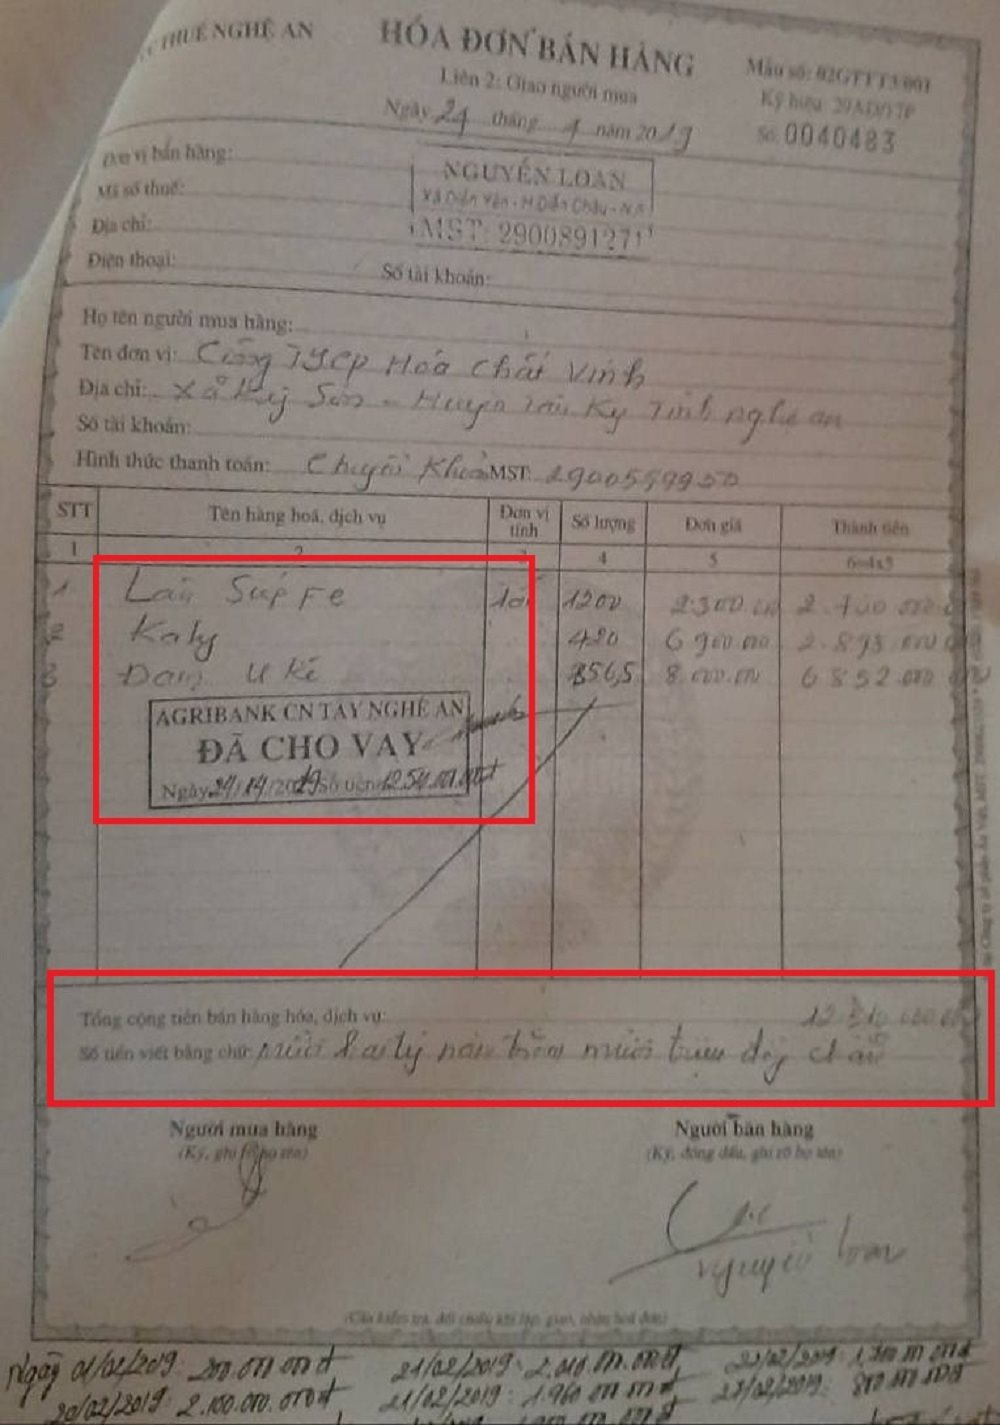 THUẾ NGHỆ AN
HÓA ĐƠN BÁN HÀNG
Liên 2: Giao người mua
Ngày 24 tháng 4 năm 2019
Mẫu số: 02GTTT3/001
Ký hiệu: 29AD/17P
Số: 0040483
Đơn vị bán hàng:
NGUYỄN LOAN
Mã số thuế:
Xã Diễn Yên - H Diễn Châu - N.A
Địa chỉ:
MST: 2900891271
Điện thoại:
Số tài khoản:
Họ tên người mua hàng:
Tên đơn vị: Công TyCP Hóa Chất Vinh
Địa chỉ: Xã Kỳ Sơn - Huyện Tân Kỳ Tỉnh nghệ an
Số tài khoản:
Hình thức thanh toán: Chuyển Khoản MST: 2900559950
STT Tên hàng hoá, dịch vụ Đơn vị tính Số lượng Đơn giá Thành tiền
1 2 3 4 5 6=4x5
1 Lân Supe 1200
2 Kaly 420 6 900.000 2.898.000
3 Đạm U Rê 856,5 8.000.000 6 852.000
AGRIBANK CN TÂY NGHỆ AN
ĐÃ CHO VAY
Ngày 24/14/2019 Số tiền
Tổng cộng tiền bán hàng hóa, dịch vụ:
Số tiền viết bằng chữ: mười hai tỷ năm trăm mười triệu đồng chẵn
Người mua hàng
(Ký, ghi rõ họ tên)
Người bán hàng
(Ký, đóng dấu, ghi rõ họ tên)
Nguyễn Loan
(Cần kiểm tra, đối chiếu khi lập, giao, nhận hoá đơn)
Ngày 01/02/2019: 200.000.000đ 21/02/2019: 2.016.000.000đ 22/02/2019:
20/02/2019: 2.100.000.000đ 21/02/2019: 1.960.000.000đ 23/02/2019: